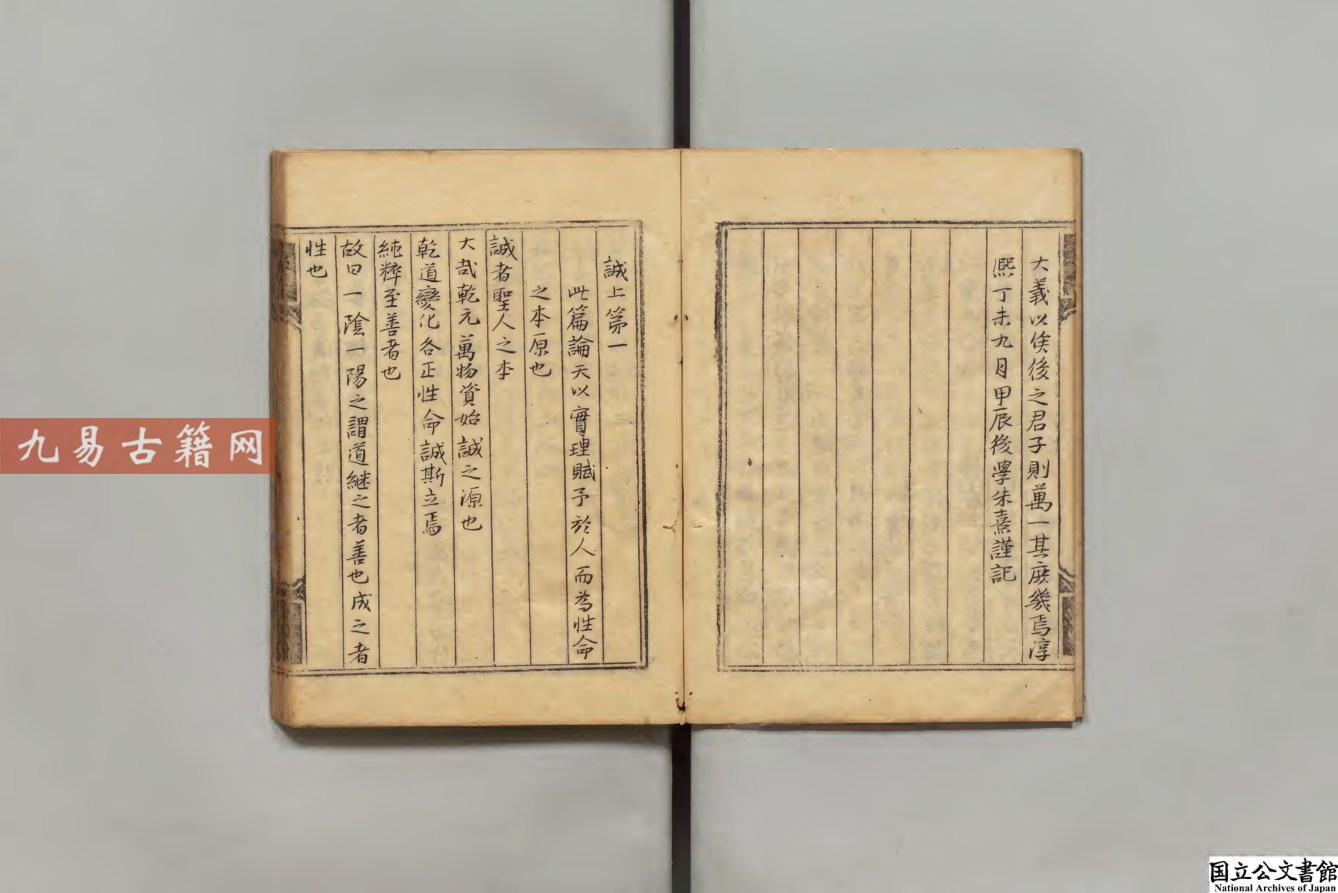 大義以俟後之君子則萬一其庶幾焉淳
熙丁未九月甲辰後學朱熹謹記
誠上第一
此篇論天以實理賦予於人而為性命
之本原也
誠者聖人之本
大哉乾元萬物資始誠之源也
乾道變化各正性命誠斯立焉
純粹至善者也
故曰一陰一陽之謂道継之者善也成之者
性也
九易古籍网
国立公文書館
National Archives of Japan